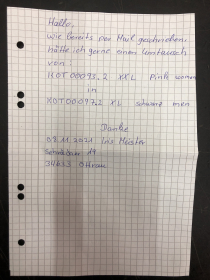 Hallo,
wie bereits per Mail geschrieben,
hätte ich gerne einen Umtausch
von:
HOT00093.2 XXL Pink women
in
HOT00097.2 XL schwarz men
Danke
09.11.2021 Iris Meister
19
34633 Ottrau